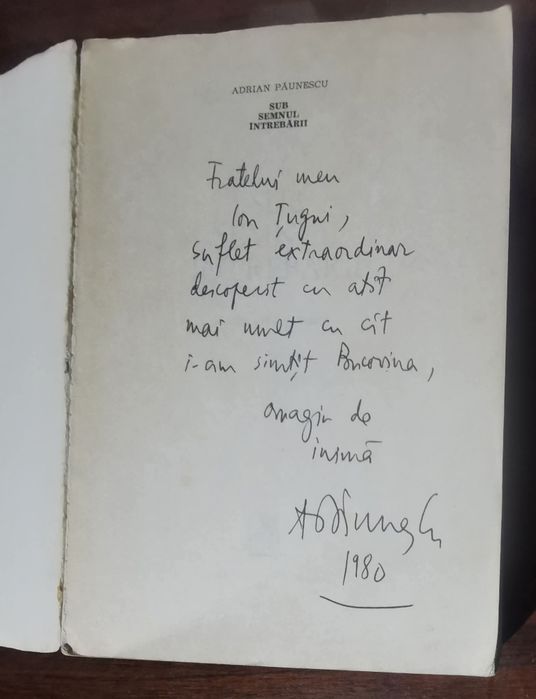 ADRIAN PĂUNESCU
SUB
SEMNUL
ÎNTREBĂRII
Fratelui meu
Ion Țugui,
suflet extraordinar
descoperit cu atît
mai mult cu cît
i-am simțit Bucovina,
omagiu de
inimă
A Păunescu
1980